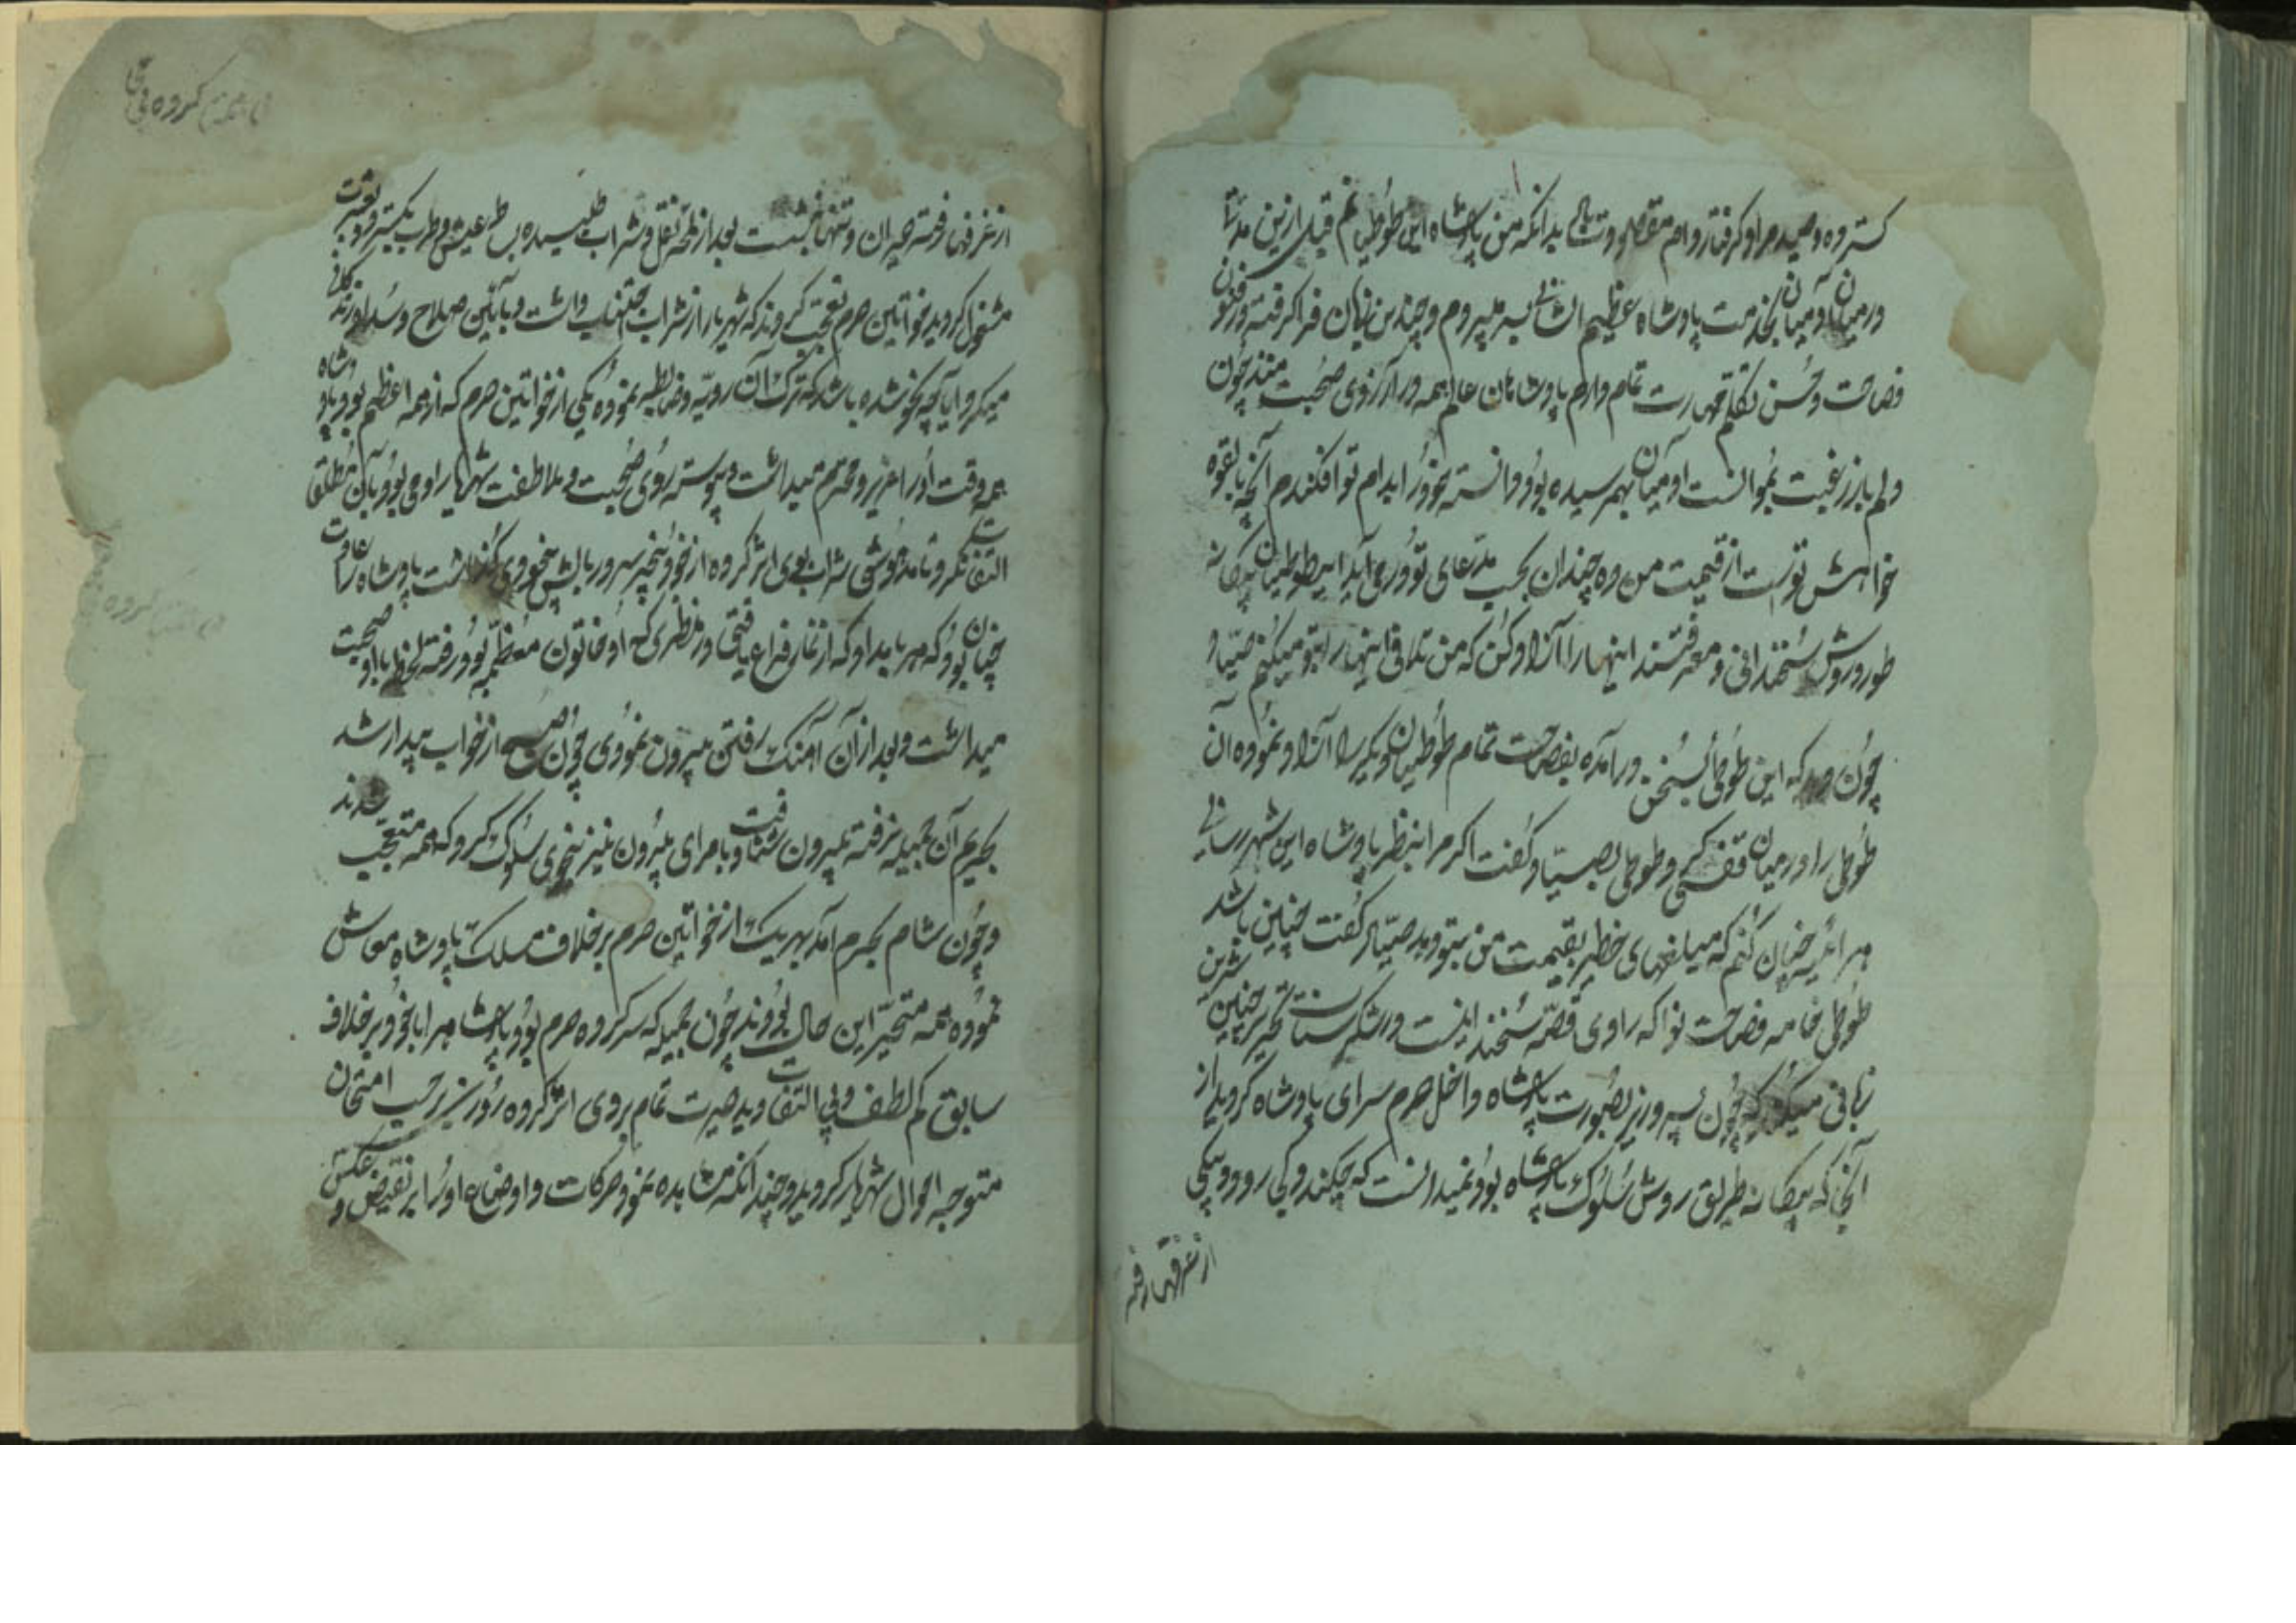 کسترده وصید مراد گرفتار دام مقصود تست بدانکه من پادشاه این طوطیانم قبل ازین مدتها
در میان آدمیان بخدمت پادشاه عظیم الشانی بسر میبردم و چندین زبان فرا گرفته در فنون
فصاحت و حسن تکلم مهارت تمام دارم پادشاهان عالم همه در آرزوی صحبت منند چون
دلم باز رغبت بموانست آدمیان بهمرسیده بود دانسته خود را بدام تو افکندم آنچه بالقوه
خواهش تست از قیمت من ده چندان بجیب مدعای تو در می آید این طوطیان بیگانه
طور و روش سخندانی و معرفتند اینها را آزاد کن که من تلافی اینها را بتو میکنم صیاد
چون دید که این طوطی بسخن درآمده بفصاحت تمام طوطیان دیگر را آزاد نموده آن
طوطی را در میان قفس کرد و طوطی بصیاد گفت اگر مرا بنظر پادشاه این شهر رسانی
هر آئینه چنان کنم که مبلغهای خطیر بقیمت من بتو دهد صیاد گفت چنین باشد
طوطی خامه فصاحت نوا که راوی قصه سخندانیست در شکرستان تحریر چنین شیرین
زبانی میکند که چون پسر وزیر بصورت پادشاه داخل حرم سرای پادشاه گردید از
آنجا که بیگانه طریق روش سلوک پادشاه بود نمیدانست که چکند و کی رود و بیکی
از غرفها رفته
از غرفها رفته حیران و تنها نشست بعد از لمحه نقل و شراب طلبیده بساط عیش و طرب بگسترد و بعشرت
مشغول گردید خواتین حرم تعجب کردند که شهریار از شراب اجتناب داشت و بآئین صلاح و سداد زندگانی
میکرد آیا چه نحو شده باشد که ترک آن رویه و ضابطه نموده یکی از خواتین حرم که از همه اعظم بود و پادشاه
همه وقت او را عزیز و محترم میداشت و پیوسته روی صحبت و ملاطفت شهریار با وی بود بآن مطلقا
التفات نکرد تا مدهوشی شراب بوی اثر کرده از خود بیخبر سر در بالش بیخودی گذاشت پادشاه را عادت
چنان بود که هر بامداد که از نماز فراغ یافتی در منظری که او خاتون معظمه بود رفته لحظه با او صحبت
میداشت و بعد از آن آهنگ رفتن بیرون نمودی چون صبح از خواب بیدار شد
بحریم آن جمیله نرفته بیرون شتافت و با مرای بیرون نیز بنحوی سلوک کرد که همه متعجب شدند
و چون شام بحرم آمد بهر یک از خواتین حرم بر خلاف مسلک پادشاه معاش
نموده همه متحیر این حال بودند چون جمیله که سرکرده حرم بود پادشاه را با خود بر خلاف
سابق کم لطف و بی التفات دید حیرت تمام بر وی اثر کرده روز نیز بر حسب امتحان
متوجه احوال شهریار گردید و چندانکه مشاهده نمود حرکات و اوضاع او را بر نقیض و عکس